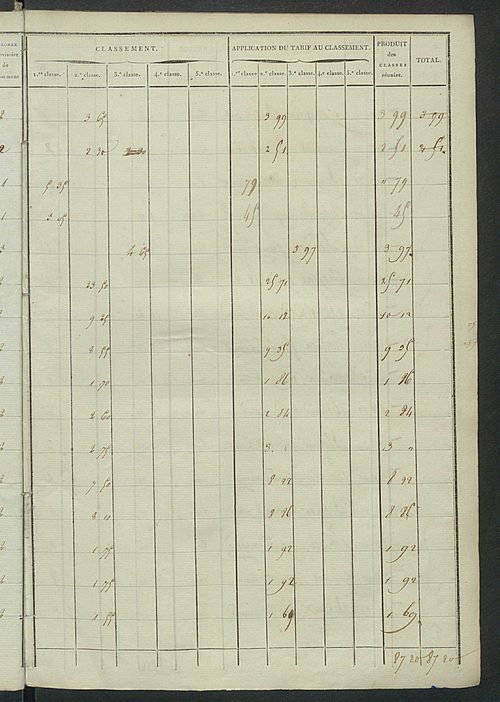 CLASSEMENT. APPLICATION DU TARIF AU CLASSEMENT. PRODUIT des CLASSES réunies. TOTAL.
1.re classe. 2.e classe. 3.e classe. 4.e classe. 5.e classe. 1.re classe 2.e classe. 3.e classe. 4.e classe. 5.e classe.
2 3 65 3 99 3 99 3 99
2 2 30 2 51 2 51 2 51
1 5 35 79 " 79
1 3 05 45 45
3 4 65 3 97 3 97
2 23 50 25 71 25 71
2 9 25 10 12 10 12
2 8 55 9 35 9 35
2 1 70 1 86 1 86
2 2 60 2 84 2 84
2 2 75 3 " 3 "
2 7 50 8 22 8 22
2 8 10 8 86 8 86
2 1 75 1 92 1 92
2 1 75 1 92 1 92
2 1 55 1 69 1 69
87 20 87 20